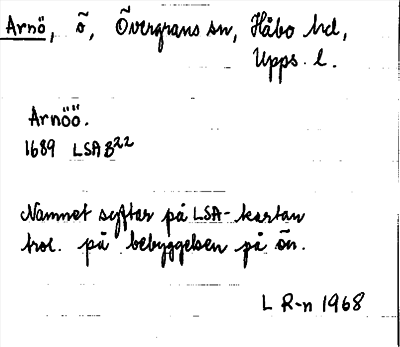 Arnö, ö, Övergrans sn, Håbo hd,
Upps. l.
Arnöö.
1689 LSA B22
Namnet syftar på LSA-kartan
trol. på bebyggelsen på ön.
L R-n 1968